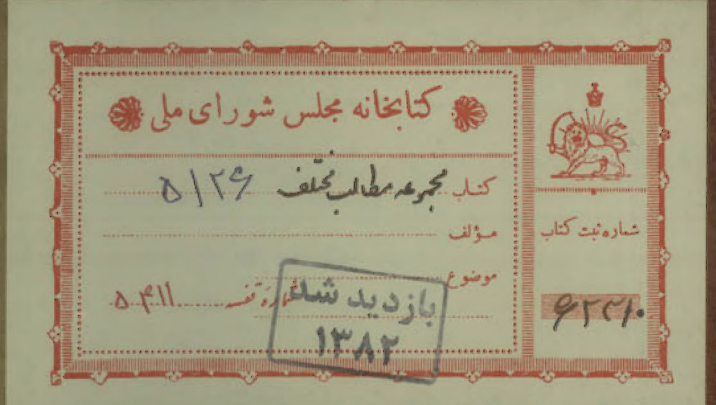 کتابخانه مجلس شورای ملی
کتاب مجموعه مطالب مختلف ۵۱۲۶
مؤلف
موضوع
شماره قفسه ۵۴۱۱
بازدید شد
۱۳۸۲
شماره ثبت کتاب